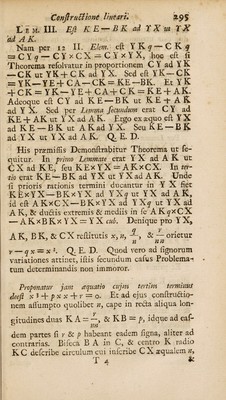 Constructione lineari. 295
LEM. III. Est KE—BK ad YX ut YX
ad AK.
Nam per 12 II. Elem. est YKq—CKq
=CYq—CY×CX=CY×YX, hoc est si
Theorema resolvatur in proportionem CY ad YK
—CK ut YK+CK ad YX. Sed est YK—CK
=YK—YE+CA—CK=KE—BK. Et YK
+CK=YK—YE+CA+CK=KE+AK.
Adeoque est CY ad KE—BK ut KE+AK
ad YX. Sed per Lemma secundum erat CY ad
KE+AK ut YX ad AK. Ergo ex æquo est YX
ad KE—BK ut AK ad YX. Seu KE—BK
ad YX ut YX ad AK. Q. E. D.
His præmissis Demonstrabitur Theorema ut se-
quitur. In primo Lemmate erat YX ad AK ut
CX ad KE, seu KE×YX=AK×CX. In ter-
tio erat KE—BK ad YX ut YX ad AK. Unde
si prioris rationis termini ducantur in YX fiet
KE×YX—BK×YX ad YXq ut YX ad AK,
id est AK×CX—BK×YX ad YXq ut YX ad
AK, & ductis extremis & mediis in se AKq×CX
—AK×BK×YX=YX cub. Denique pro YX,
AK, BK, & CX restitutis x, n, q/n, & r/nn orietur
r—qx=x³. Q. E. D. Quod vero ad signorum
variationes attinet, istis secundum casus Problema-
tum determinandis non immoror.
Proponatur jam æquatio cujus tertius terminus
deest x³+pxx+r=0. Et ad ejus constructio-
nem assumpto quolibet n, cape in recta aliqua lon-
gitudines duas KA=r/nn, & KB=p, idque ad eas-
dem partes si r & p habeant eadem signa, aliter ad
contrarias. Biseca BA in C, & centro K radio
KC describe circulum cui inscribe CX æqualem n,
T 4 &